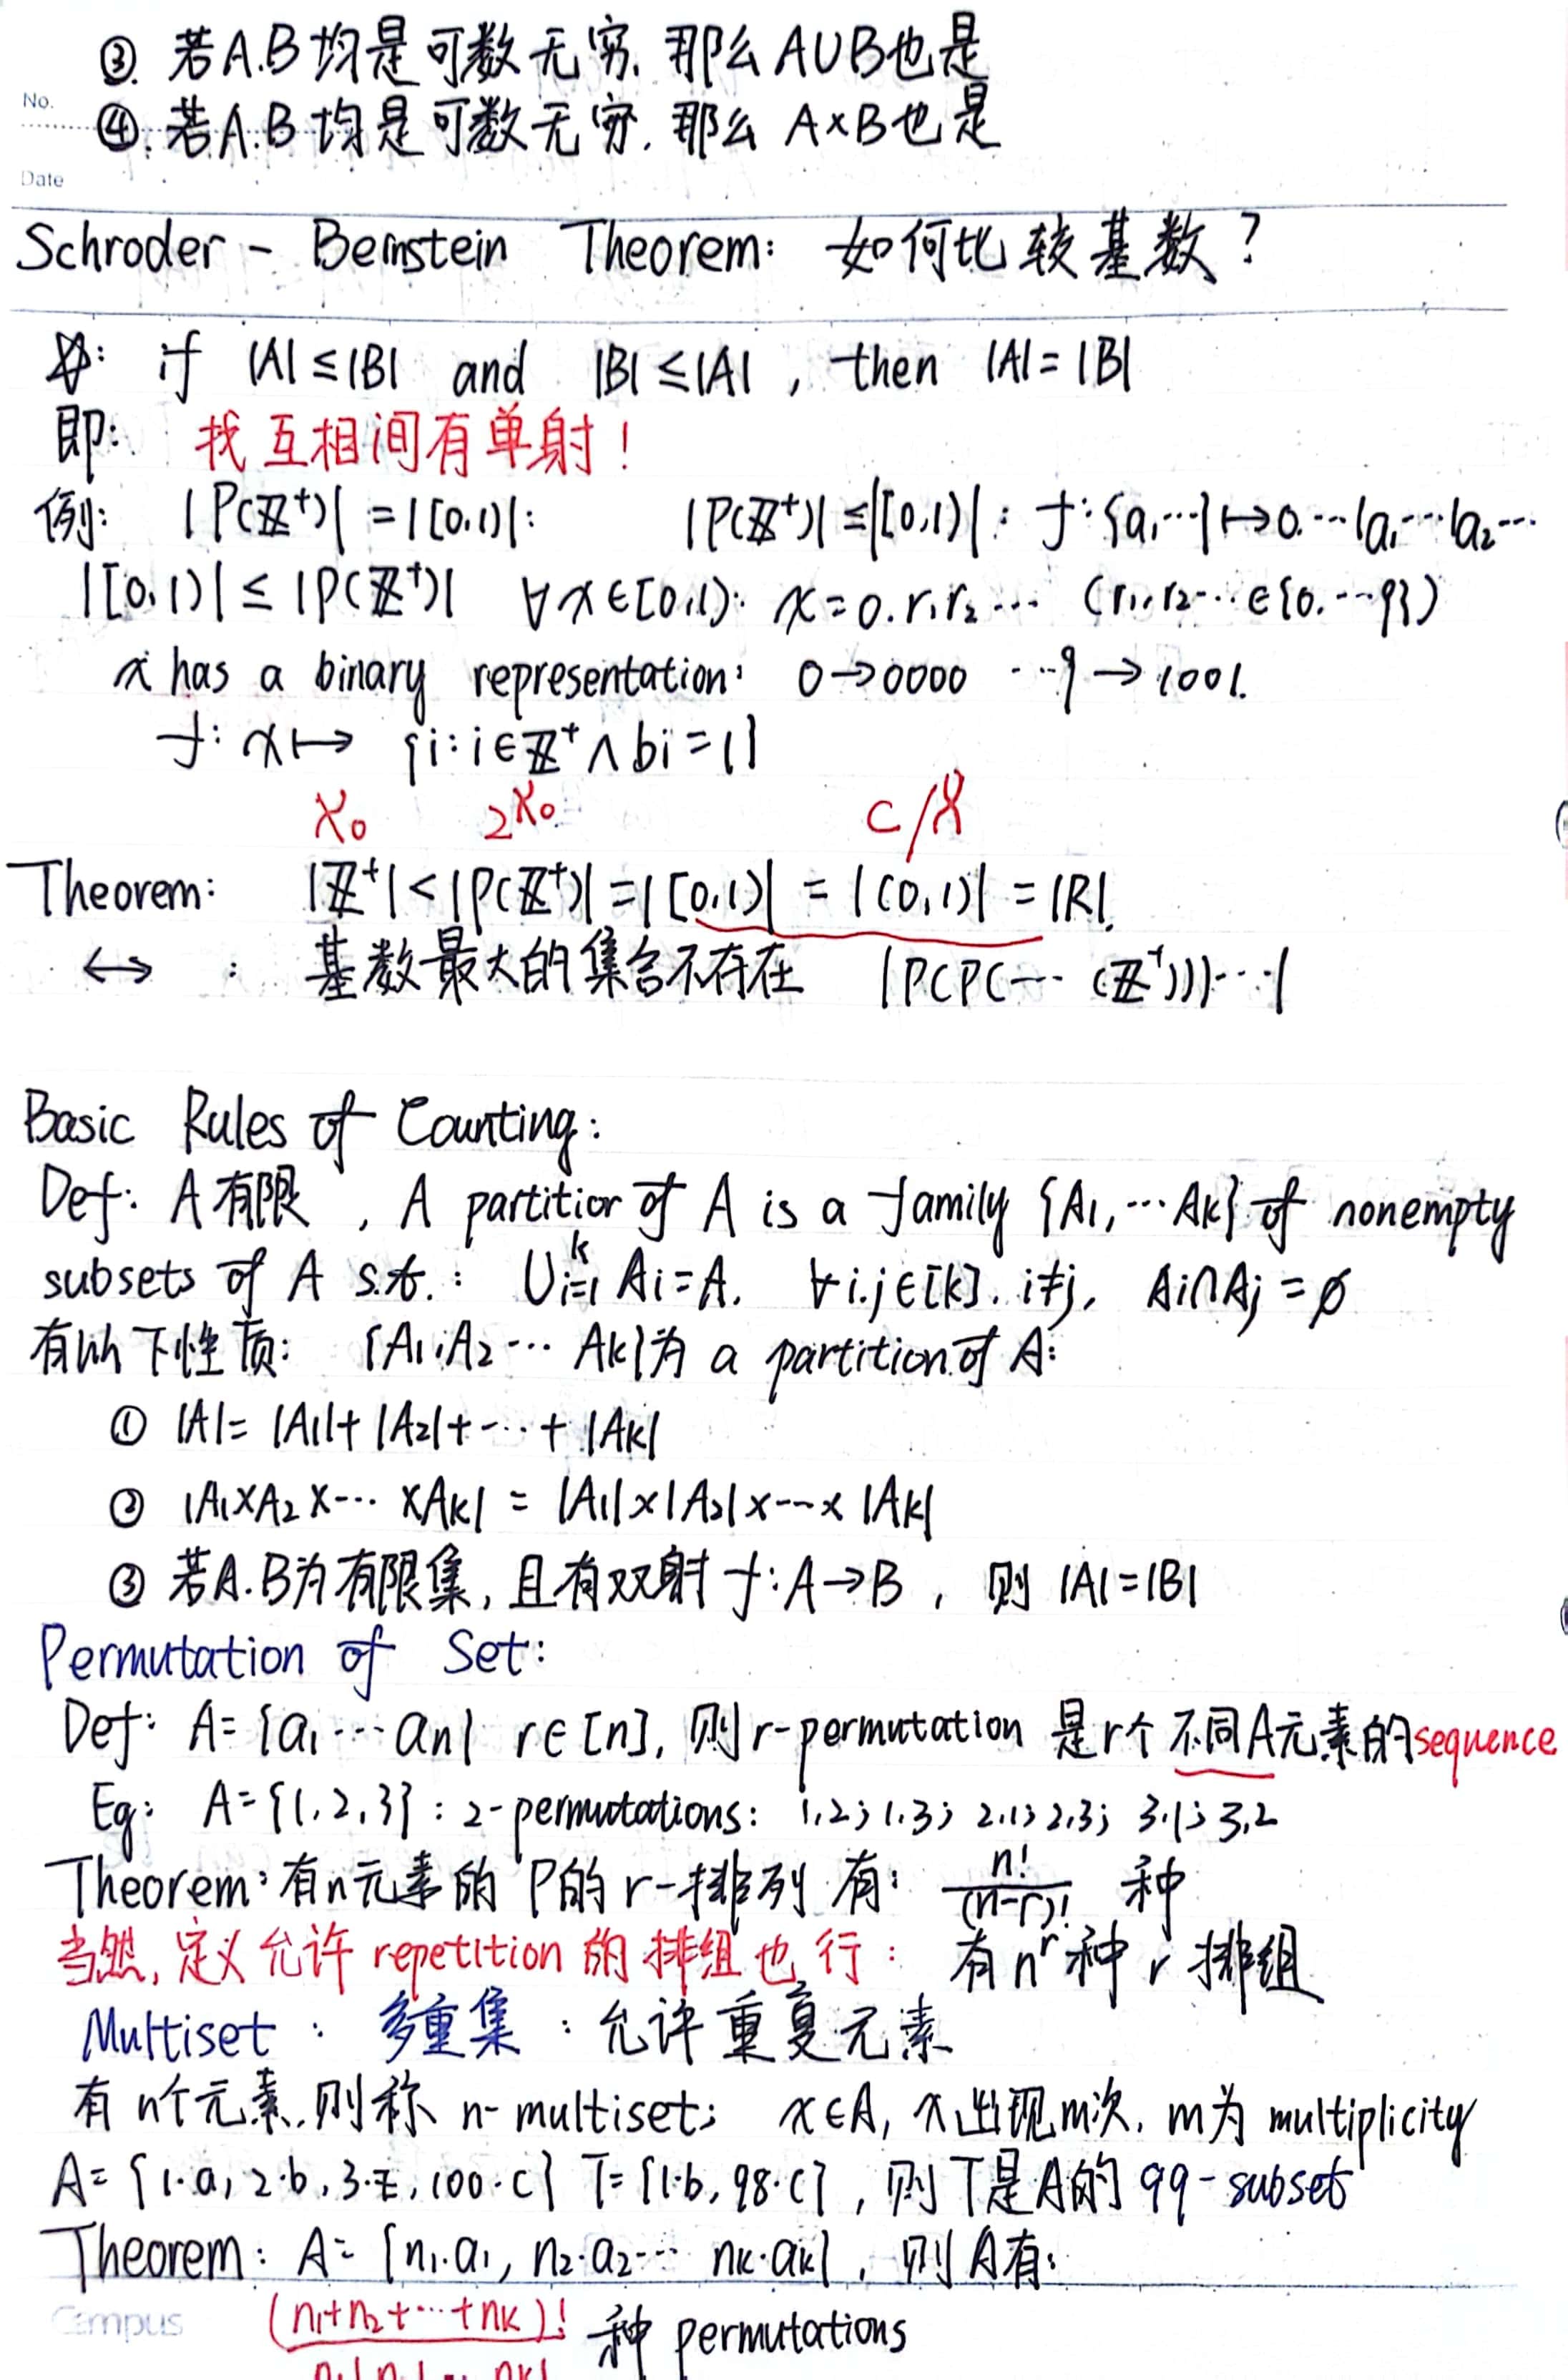 ③. 若A.B均是可数无穷. 那么A∪B也是
No.
④. 若A.B均是可数无穷. 那么 A×B也是
Date
Schroder - Bernstein Theorem: 如何比较基数?
☆: if |A|≤|B| and |B|≤|A|, then |A|=|B|
即: 找互相间有单射!
例: |P(Z⁺)|=|[0,1)|: |P(Z⁺)|≤|[0,1)|: f:{a₁…}↦0.…1a₁…1a₂…
|[0,1)|≤|P(Z⁺)| ∀x∈[0,1): x=0.r₁r₂… (r₁,r₂…∈{0,…9})
x has a binary representation: 0→0000 …9→1001.
f: x↦ {i: i∈Z⁺∧bi=1}
ℵ₀ 2^ℵ₀ C/ℵ
Theorem: |Z⁺|<|P(Z⁺)|=|[0,1)|=|(0,1)|=|R|.
↔ : 基数最大的集合不存在 |P(P(…(Z⁺)))…|
Basic Rules of Counting:
Def: A有限, A partition of A is a family {A₁,…Ak} of nonempty
subsets of A s.t.: ∪ᵏᵢ₌₁ Ai=A. ∀i.j∈[k]. i≠j, Ai∩Aj=∅
有以下性质: {A₁,A₂…Ak}为 a partition of A:
① |A|=|A₁|+|A₂|+…+|Ak|
② |A₁×A₂×…×Ak|=|A₁|×|A₂|×…×|Ak|
③ 若A.B为有限集, 且有双射 f:A→B, 则 |A|=|B|
Permutation of Set:
Def: A={a₁…an} r∈[n], 则r-permutation 是r个不同A元素的sequence
Eg: A={1,2,3}: 2-permutations: 1,2; 1,3; 2,1; 2,3; 3,1; 3,2
Theorem: 有n元素的P的r-排列有: n!/(n-r)! 种
当然, 定义允许repetition的排组也行: 有nʳ种r排组
Multiset: 多重集: 允许重复元素
有n个元素,则称 n-multiset; x∈A, x出现m次, m为 multiplicity
A={1·a, 2·b, 3·z, 100·c} T={1·b, 98·c}, 则T是A的 99-subset
Theorem: A={n₁·a₁, n₂·a₂… nk·ak}, 则A有:
Campus
(n₁+n₂+…+nk)!/n₁!n₂!…nk! 种 permutations